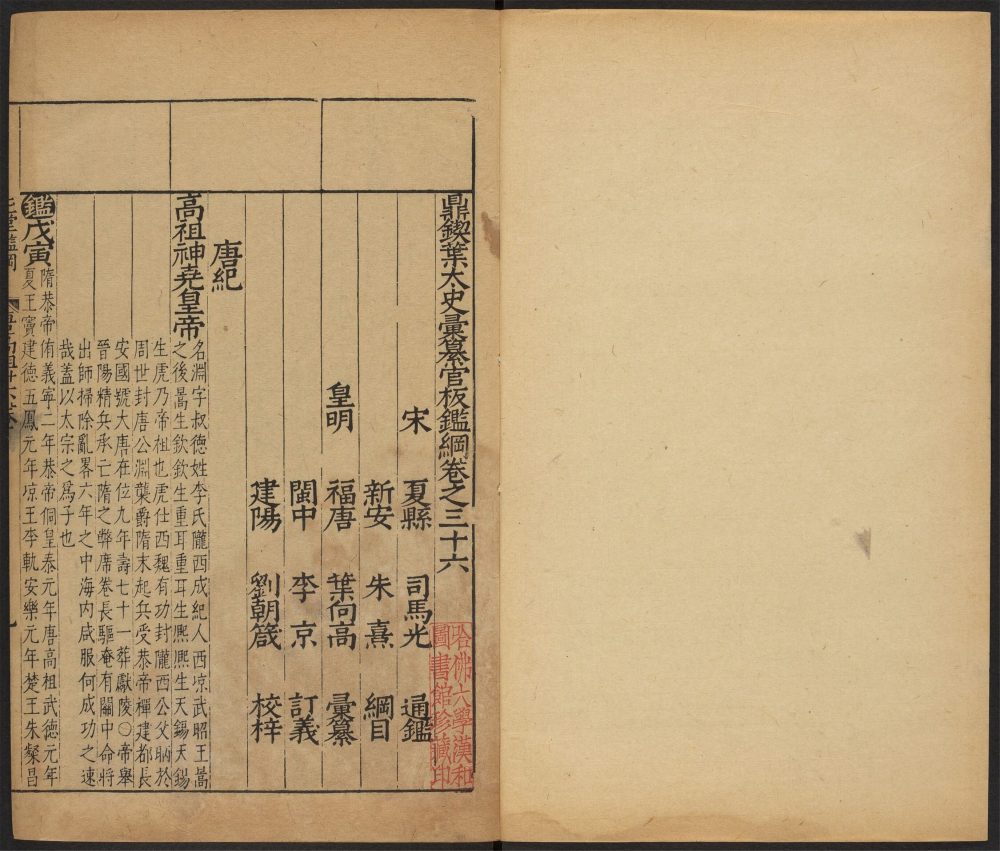 鼎鍥葉太史彙纂官板鑑綱卷之三十六
宋 夏縣 司馬光 通鑑
新安 朱熹 綱目
皇明 福唐 葉向高 彙纂
閩中 李京 訂義
建陽 劉朝箴 校梓
唐紀
高祖神堯皇帝
名淵字叔德姓李氏隴西成紀人西凉武昭王暠
之後暠生歆歆生重耳重耳生熈熈生天錫天錫
生虎乃帝祖也虎仕西魏有功封隴西公父昞於
周世封唐公淵襲爵隋末起兵受恭帝禪建都長
安國號大唐在位九年壽七十一葬獻陵○帝舉
晉陽精兵承亡隋之弊席卷長驅奄有關中命將
出師掃除亂畧六年之中海内咸服何成功之速
哉蓋以太宗之爲子也
鑑戊寅
隋恭帝侑義寧二年恭帝侗皇泰元年唐高祖武德元年
夏王竇建德五鳳元年凉王李軌安樂元年楚王朱粲昌
哈佛大學漢和
圖書館珍藏印